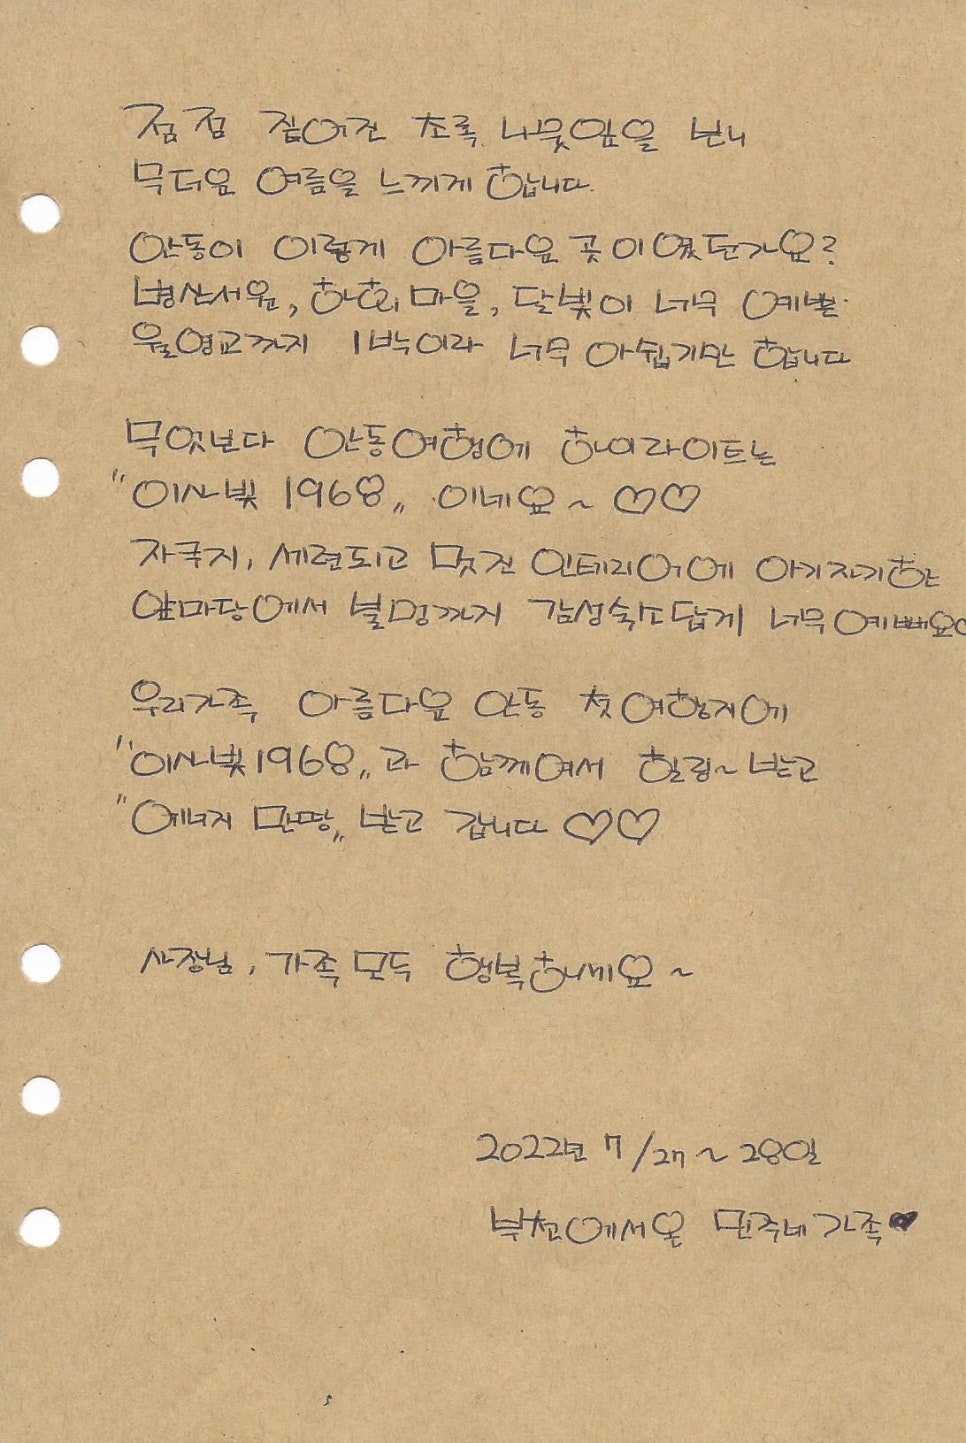 점점 짙어진 초록 나뭇잎을 보니
무더운 여름을 느끼게 합니다.
안동이 이렇게 아름다운 곳이였던가요?
병산서원, 하회마을, 달빛이 너무 예쁜
월영교까지 1박이라 너무 아쉽기만 합니다
무엇보다 안동여행에 하이라이트는
"이산빛 1968" 이네요~ ♡♡
자쿠지, 세련되고 멋진 인테리어에 아기자기한
앞마당에서 불멍까지 감성숙소답게 너무예뻐요
우리가족 아름다운 안동 첫 여행지에
"이산빛1968"과 함께여서 힐링~ 받고
"에너지 만땅" 받고 갑니다 ♡♡
사장님, 가족모두 행복하세요~
2022년 7/27~28일
부천에서온 민주네가족♥